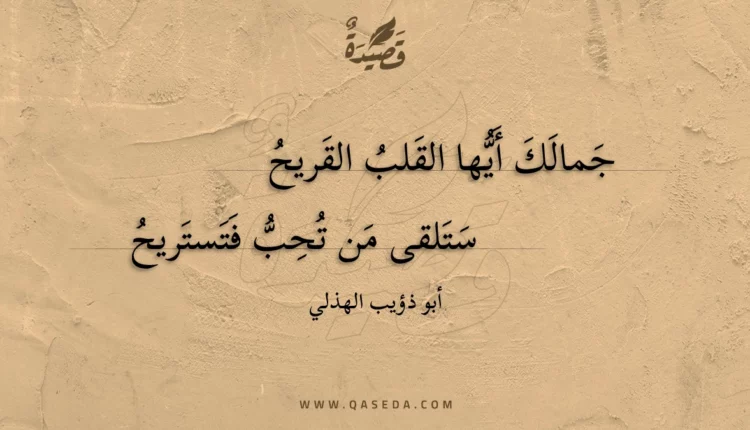 قَصِيْدَةٌ
جَمالَكَ أَيُّها القَلبُ القَريحُ
سَتَلقى مَن تُحِبُّ فَتَستَريحُ
أبو ذؤيب الهذلي
WWW.QASEDA.COM